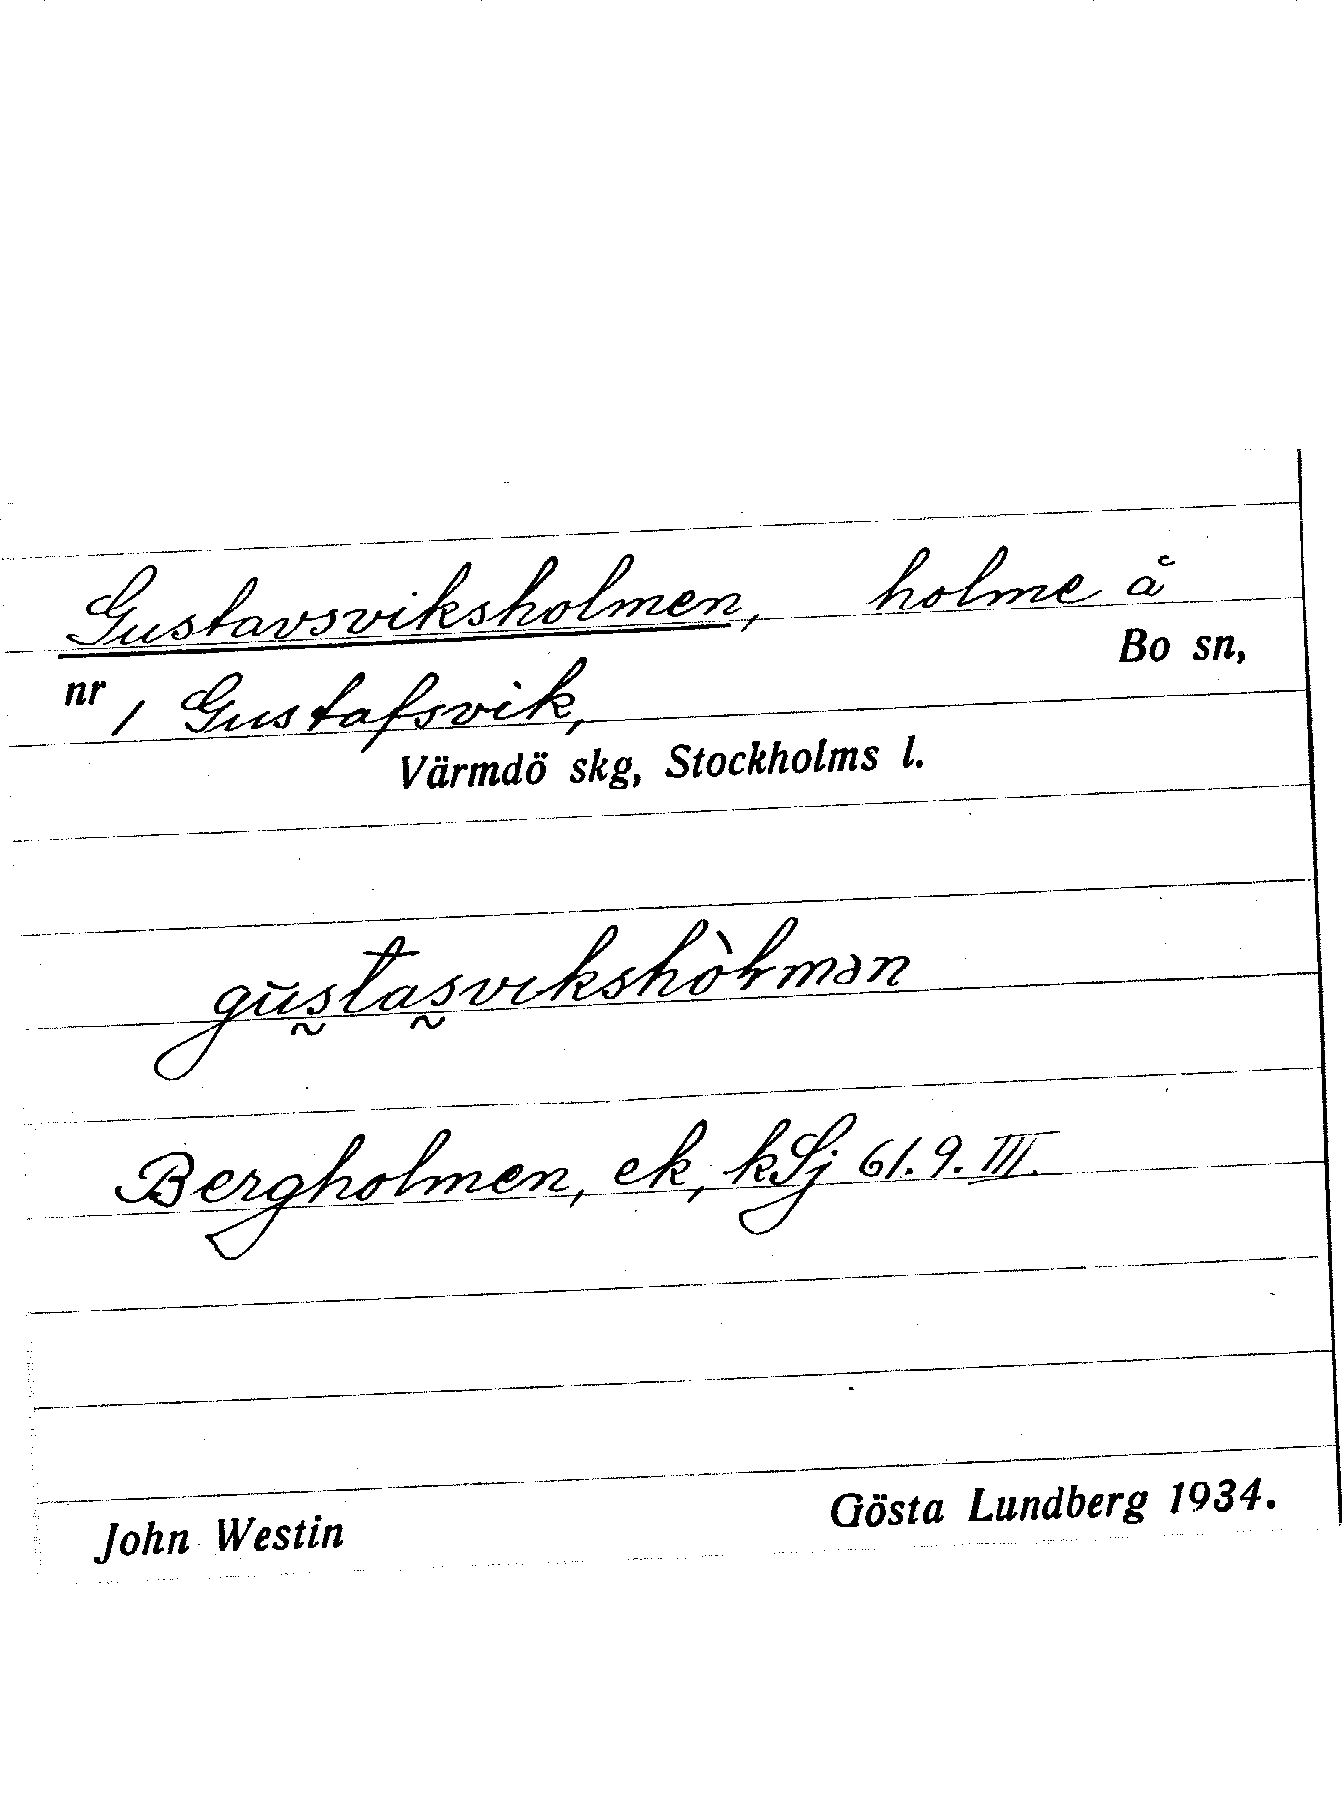 Gustavsviksholmen, holme å
Bo sn,
nr 1 Gustafsvik,
Värmdö skg, Stockholms l.
gūs̰tas̰vıkshòɫmən
Bergholmen, ek, kSj 61.9.III.
John Westin Gösta Lundberg 1934.